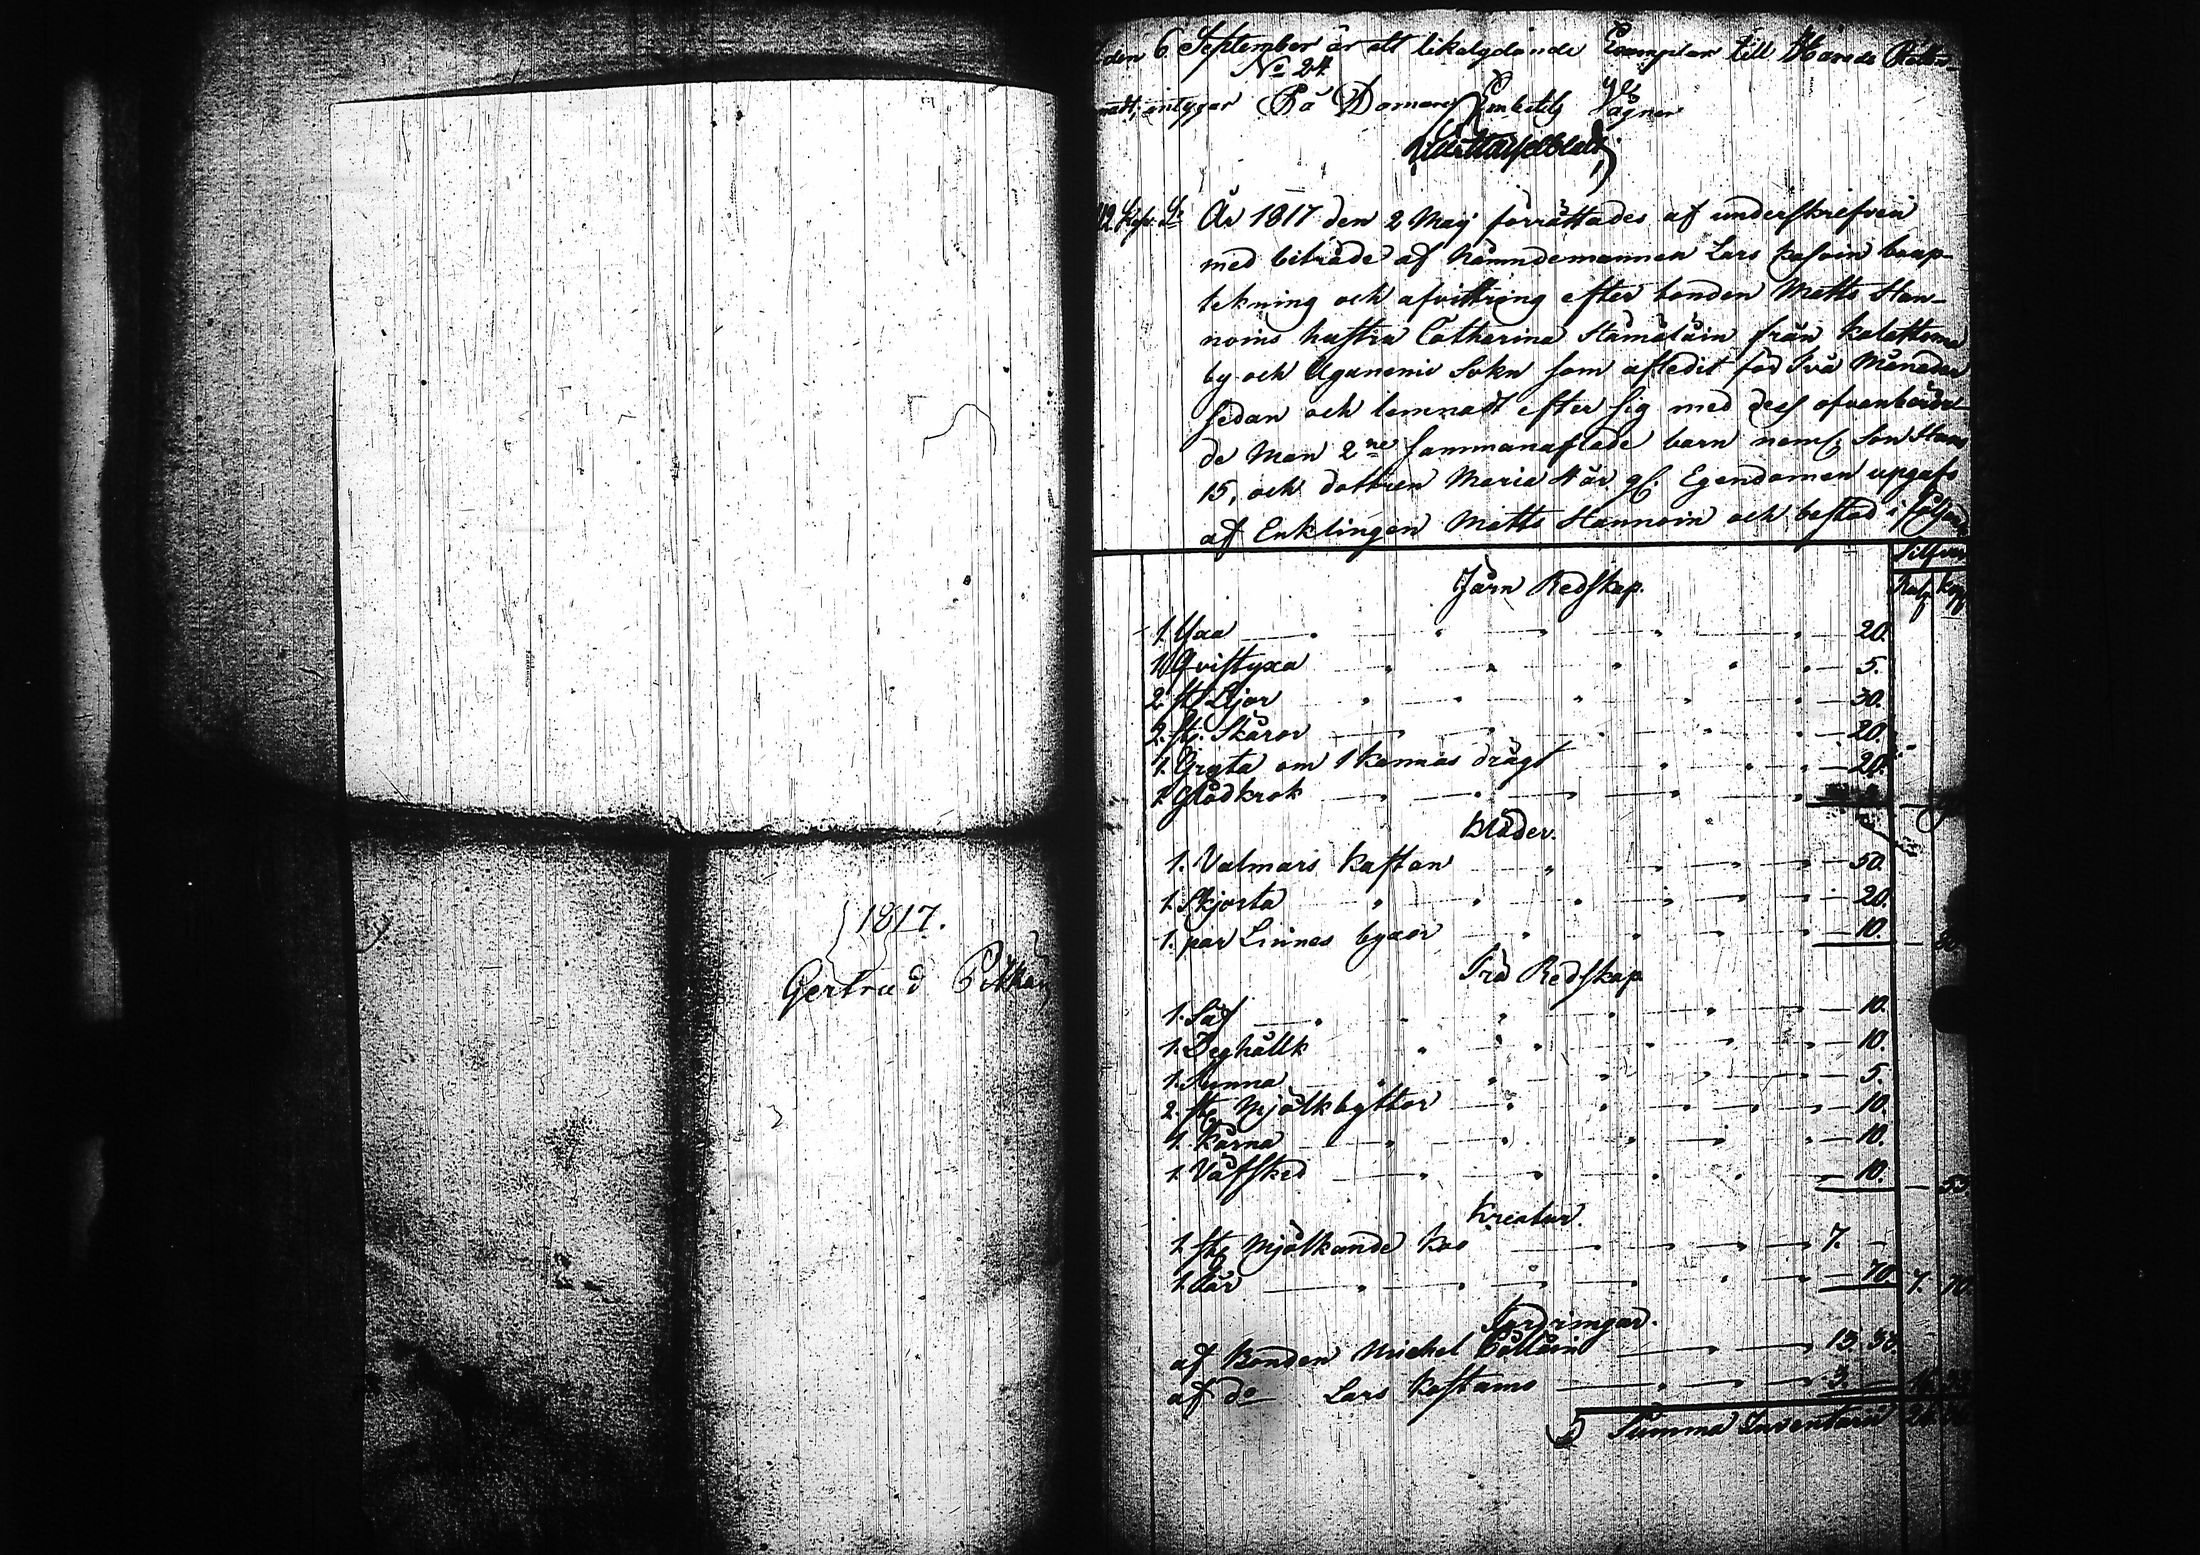 1817.
Gertrud
den 6 September är ett likalydande Exemplar till Härads Rätten
No 24
intygar På Domare Embetets Vägnar
År 1817 den 2 Maij förrättades af underskrefven
med biträde af Nämndemannen Lars Kosoin boup-
tekning och afvittring efter bonden Matts Han-
noins hustru Catharina Hämäläin från Kalattoma
by och Uguniemi Sokn som afledit för två Månader
sedan och lemnadt efter sig med dess ofvanbörde-
de Man 2ne sammanaflade barn neml: Son Hans
15, och dottren Maria år gl: Egendomen upgafs
af Enklingen Matts Hannoin och bestod i följande
Silfver
Rub. Kop.
Järn Redskap.
1. Yxa 20.
1. Qvistyxa 5.
2. st. Lijor 30.
2. st. Skäror 20.
1. Gryta om 1 kannas drägt 20.
1. Glödkrok
Kläder.
1. Valmars Kaftan 50.
1. Skjorta 20.
1. par Linnes byxor 10. 80
Trä Redskap
1. Så 10.
1. Deghållk 10.
1. Tunna 5.
2. st. Mjölkbyttor 10.
1. Kärna 10.
1. Väfsked 10. 55
Kreatur.
1. st. Mjölkande ko 7.
1. Får 70. 7. 70
Fordringar.
af Bonden Michel 13. 33.
af do Lars Kostamo 3.
Summa Inventarii